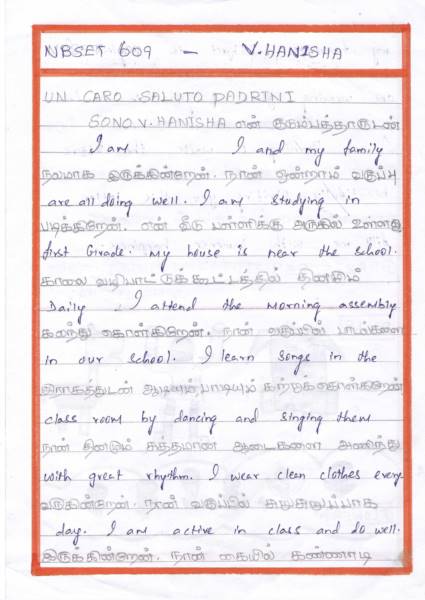 NBSET 609 - V.HANISHA
UN CARO SALUTO PADRINI
SONO V.HANISHA என் குடும்பத்தாருடன்
I am I and my family
நலமாக இருக்கின்றேன். நான் ஒன்றாம் வகுப்பு
are all doing well. I am studying in
படிக்கிறேன். என் வீடு பள்ளிக்கு அருகில் உள்ளது
first Grade. my house is near the school.
காலை வழிபாட்டுக்கூட்டத்தில் தினமும்
Daily I attend the morning assembly
கலந்து கொள்கிறேன். நான் வகுப்பில் பாடல்களை
in our school. I learn songs in the
ராகத்துடன் ஆடியும் பாடியும் கற்றுக்கொள்கிறேன்
class room by dancing and singing them
நான் தினமும் சுத்தமான ஆடைகளை அணிந்து
with great rhythm. I wear clean clothes every
வருகின்றேன். நான் வகுப்பில் சுறுசுறுப்பாக
day. I am active in class and do well.
இருக்கின்றேன். நான் கையில் கண்ணாடி